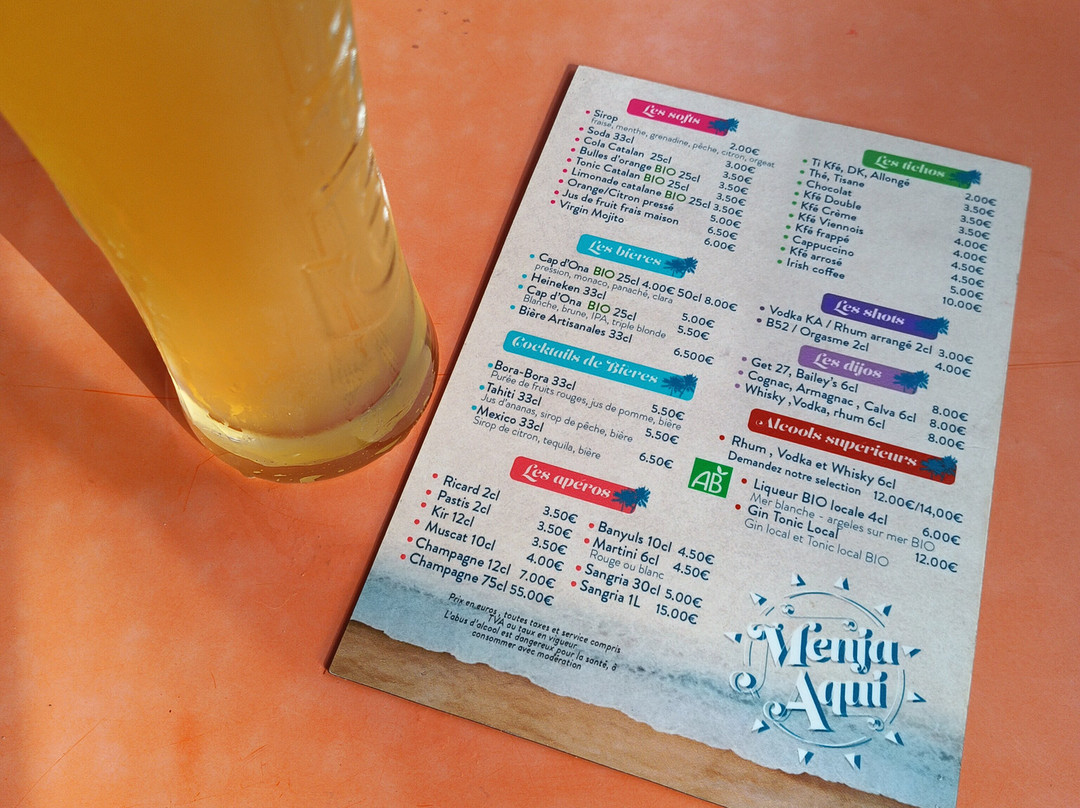 Les softs
Sirop 2.00€
fraise, menthe, grenadine, pêche, citron, orgeat
Soda 33cl 3.00€
Cola Catalan 25cl 3.50€
Bulles d'orange BIO 25cl 3.50€
Tonic Catalan BIO 25cl 3.50€
Limonade catalane BIO 25cl 3.50€
Orange/Citron pressé 5.00€
Jus de fruit frais maison 6.50€
Virgin Mojito 6.00€
Les bieres
Cap d'Ona BIO 25cl 4.00€ 50cl 8.00€
pression, monaco, panaché, clara
Heineken 33cl 5.00€
Cap d'Ona BIO 25cl 5.50€
Blanche, brune, IPA, triple blonde
Bière Artisanales 33cl 6.500€
Cocktails de Bieres
Bora-Bora 33cl 5.50€
Purée de fruits rouges, jus de pomme, bière
Tahiti 33cl 5.50€
Jus d'ananas, sirop de pêche, bière
Mexico 33cl 6.50€
Sirop de citron, tequila, bière
Les apéros
Ricard 2cl 3.50€
Pastis 2cl 3.50€
Kir 12cl 3.50€
Muscat 10cl 4.00€
Champagne 12cl 7.00€
Champagne 75cl 55.00€
Banyuls 10cl 4.50€
Martini 6cl 4.50€
Rouge ou blanc
Sangria 30cl 5.00€
Sangria 1L 15.00€
Prix en euros, toutes taxes et service compris
TVA au taux en vigueur
L'abus d'alcool est dangereux pour la santé, à
consommer avec modération
Les tichos
Ti Kfé, DK, Allongé 2.00€
Thé, Tisane 3.50€
Chocolat 3.50€
Kfé Double 4.00€
Kfé Crème 4.00€
Kfé Viennois 4.50€
Kfé frappé 4.50€
Cappuccino 4.50€
Kfé arrosé 5.00€
Irish coffee 10.00€
Les shots
Vodka KA / Rhum arrangé 2cl 3.00€
B52 / Orgasme 2cl 4.00€
Les dijos
Get 27, Bailey's 6cl 8.00€
Cognac, Armagnac, Calva 6cl 8.00€
Whisky, Vodka, rhum 6cl 8.00€
Alcools superieurs
Rhum, Vodka et Whisky 6cl
Demandez notre selection 12.00€/14,00€
AB
Liqueur BIO locale 4cl 6.00€
Mer blanche - argeles sur mer BIO
Gin Tonic Local 12.00€
Gin local et Tonic local BIO
Menja
Aquí